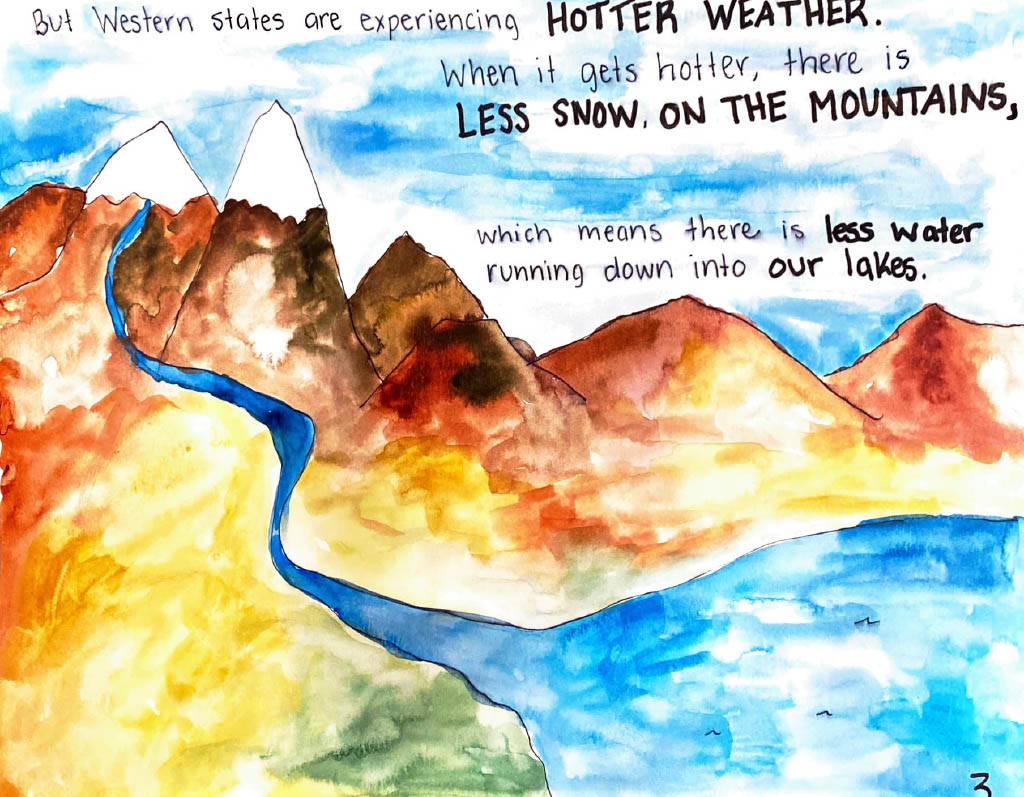 But Western states are experiencing HOTTER WEATHER.
When it gets hotter, there is
LESS SNOW. ON THE MOUNTAINS,
which means there is less water
running down into our lakes.
3